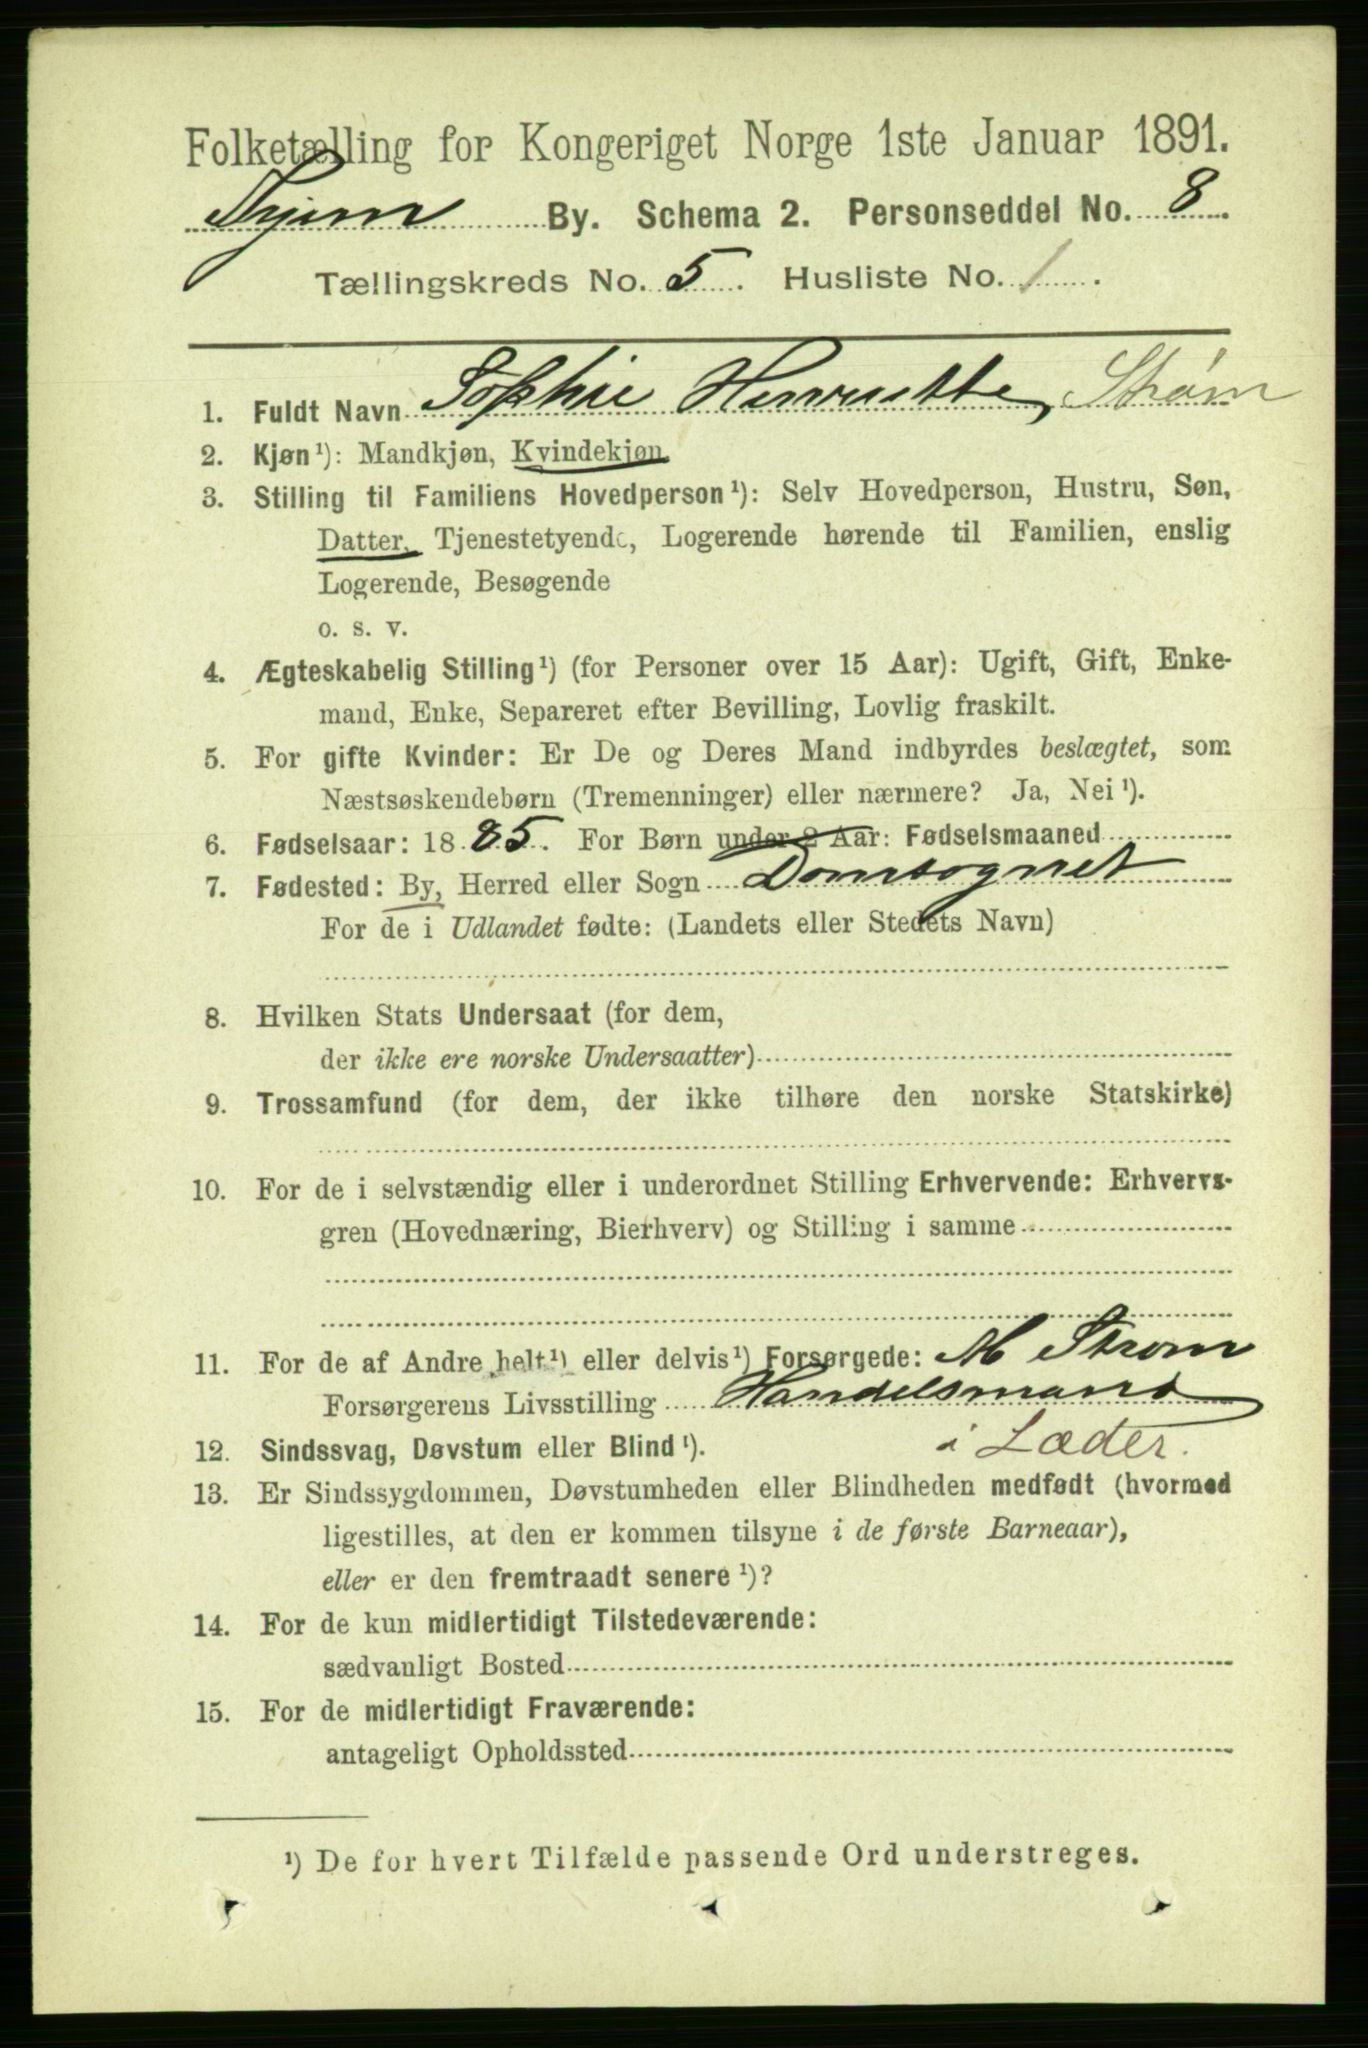 Folketælling for Kongeriget Norge 1ste Januar 1891.
By. Schema 2. Personseddel No. 8
Tællingskreds No. 5. Husliste No. 1.
1. Fuldt Navn Sophie Henriette Strøm
2. Kjøn¹): Mandkjøn, Kvindekjøn
3. Stilling til Familiens Hovedperson¹): Selv Hovedperson, Hustru, Søn,
Datter, Tjenestetyende, Logerende hørende til Familien, enslig
Logerende, Besøgende
o. s. v.
4. Ægteskabelig Stilling¹) (for Personer over 15 Aar): Ugift, Gift, Enke-
mand, Enke, Separeret efter Bevilling, Lovlig fraskilt.
5. For gifte Kvinder: Er De og Deres Mand indbyrdes beslægtet, som
Næstsøskendebørn (Tremenninger) eller nærmere? Ja, Nei¹).
6. Fødselsaar: 1885. For Børn under 2 Aar: Fødselsmaaned
7. Fødested: By, Herred eller Sogn Domsognet
For de i Udlandet fødte: (Landets eller Stedets Navn)
8. Hvilken Stats Undersaat (for dem,
der ikke ere norske Undersaatter)
9. Trossamfund (for dem, der ikke tilhøre den norske Statskirke)
10. For de i selvstændig eller i underordnet Stilling Erhvervende: Erhvervs-
gren (Hovednæring, Bierhverv) og Stilling i samme
11. For de af Andre helt¹) eller delvis¹) Forsørgede: M Strøm
Forsørgerens Livsstilling Handelsmand
12. Sindssvag, Døvstum eller Blind¹). i Læder.
13. Er Sindssygdommen, Døvstumheden eller Blindheden medfødt (hvormed
ligestilles, at den er kommen tilsyne i de første Barneaar),
eller er den fremtraadt senere¹)?
14. For de kun midlertidigt Tilstedeværende:
sædvanligt Bosted
15. For de midlertidigt Fraværende:
antageligt Opholdssted
¹) De for hvert Tilfælde passende Ord understreges.